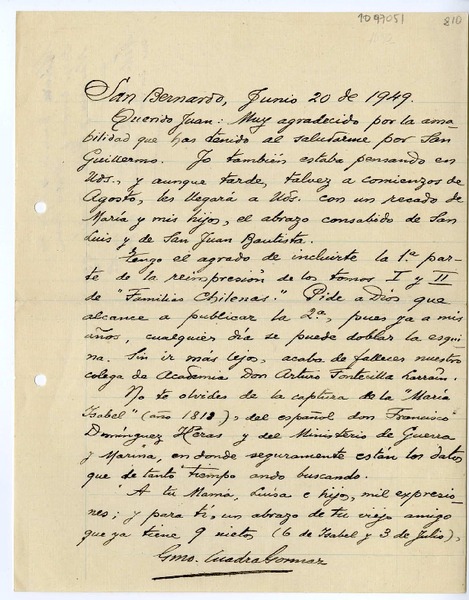 1097051 810
San Bernardo, Junio 20 de 1949.
Querido Juan: Muy agradecido por la ama-
bilidad que has tenido al saludarme por San
Guillermo. Yo también estaba pensando en
Uds., y aunque tarde, talvez a comienzos de
Agosto, les llegará a Uds. con un recado de
María y mis hijos, el abrazo consabido de San
Luis y de San Juan Bautista.
Tengo el agrado de incluirte la 1ª par-
te de la reimpresión de los tomos I y II
de "Familias Chilenas." Pide a Dios que
alcance a publicar la 2ª, pues ya a mis
años, cualquier día se puede doblar la esqui-
na. Sin ir más lejos, acaba de fallecer nuestro
colega de Academia Don Arturo Fontecilla Larraín.
No te olvides de la captura de la "María
Isabel" (año 1818), del español don Francisco
Domínguez Heras y del Ministerio de Guerra
y Marina, en donde seguramente están los datos
que de tanto tiempo ando buscando.
A tu Mamá, Luisa e hijos, mil expresio-
nes; y para tí, un abrazo de tu viejo amigo
que ya tiene 9 nietos (6 de Isabel y 3 de Julio),
Gmo. Cuadra Gormaz